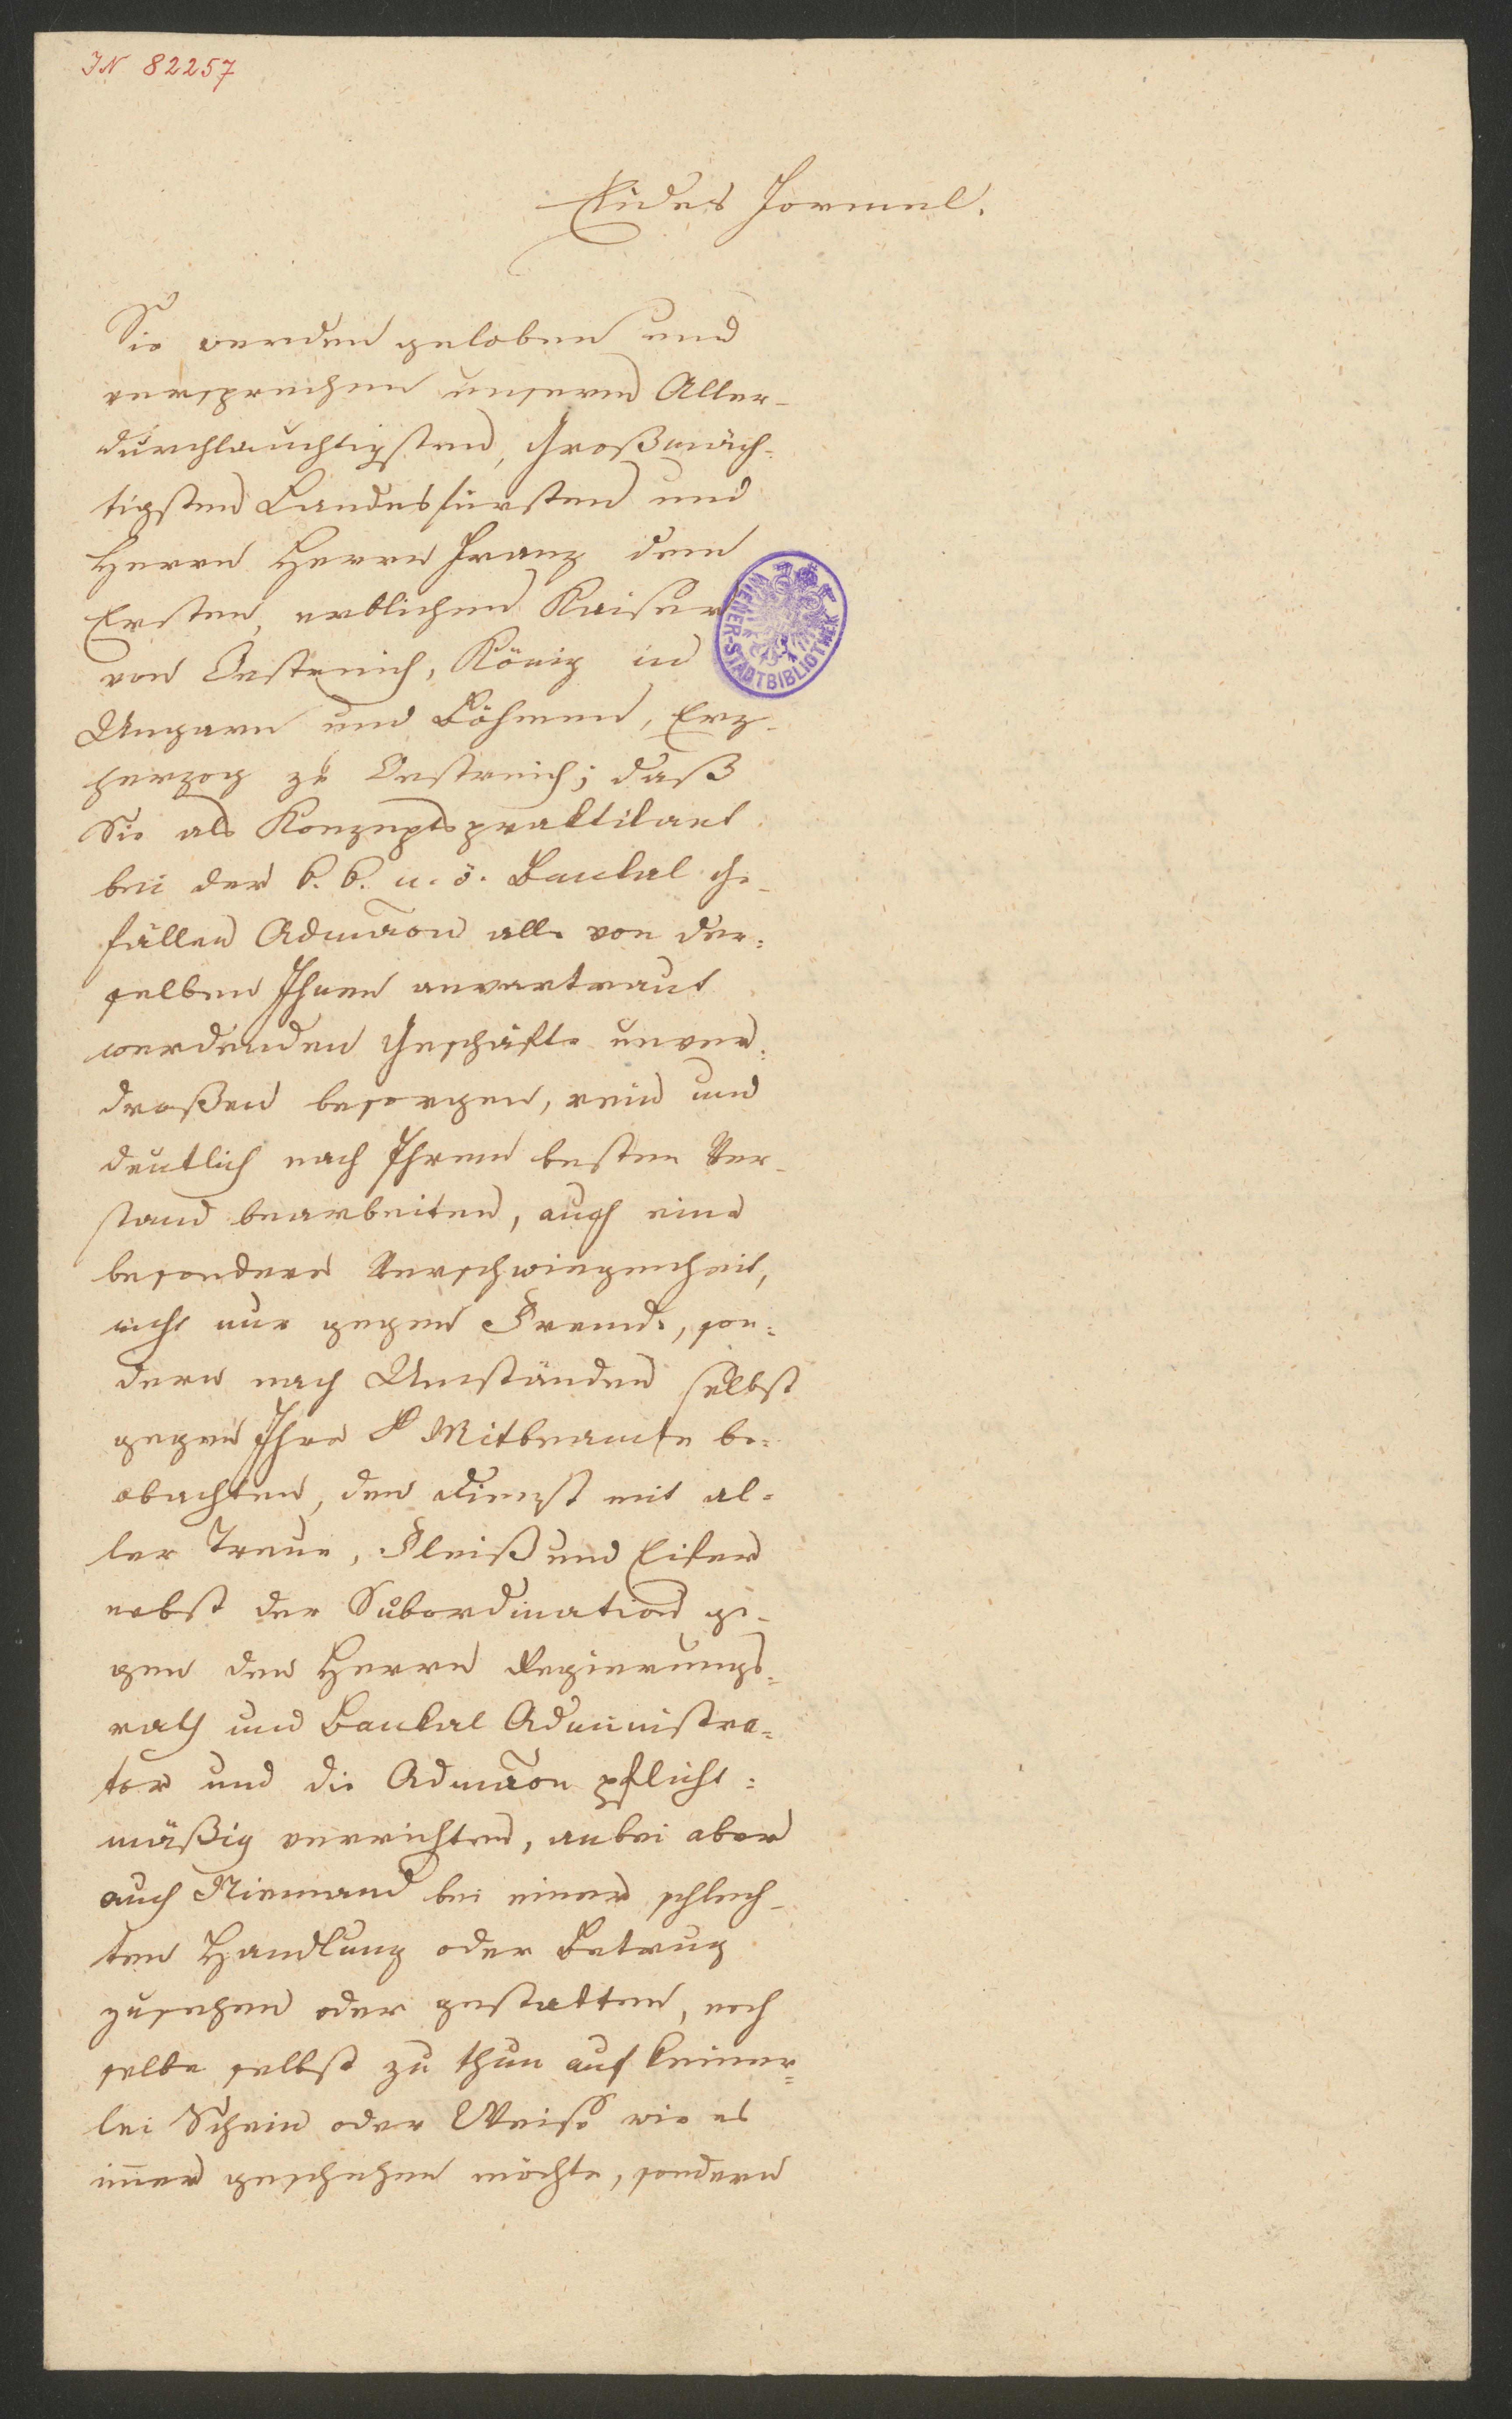 IN 82257
Eides Formel.
Sie werden geloben und
versprechen unserm Aller-
durchlauchtigsten, Großmäch-
tigsten Landesfürsten und
Herrn Herrn Franz dem
Ersten, erblichen Kaiser
von Oestreich, König in
Ungarn und Böhmen, Erz-
herzog zu Oestreich; daß
Sie als Konzeptspraktikant
bei der k. k. n. ö. Bankal Ge-
fällen Admāon alle von der=
selben Ihnen anvertraut
werdenden Geschäfte unver=
droßen besorgen, rein und
deutlich nach Ihrem besten Ver-
stand bearbeiten, auch eine
besondere Verschwiegenheit,
nicht nur gegen Fremde, son=
dern nach Umständen selbst
gegen Ihre Mitbeamte be=
obachten, den Dienst mit al=
ler Treue, Fleiß und Eifer
nebst der Subordination ge-
gen den Herrn Regierungs=
rath und Bankal Administra=
tor und die Admāon pflicht=
mäßig verrichten, anbei aber
auch Niemand bei einer schlech-
ten Handlung oder Betrug
zusehen oder gestatten, noch
selbe selbst zu thun auf keiner=
lei Schein oder Weise wie es
im̄er geschehen möchte, sondern
WIENER-STADTBIBLIOTHEK